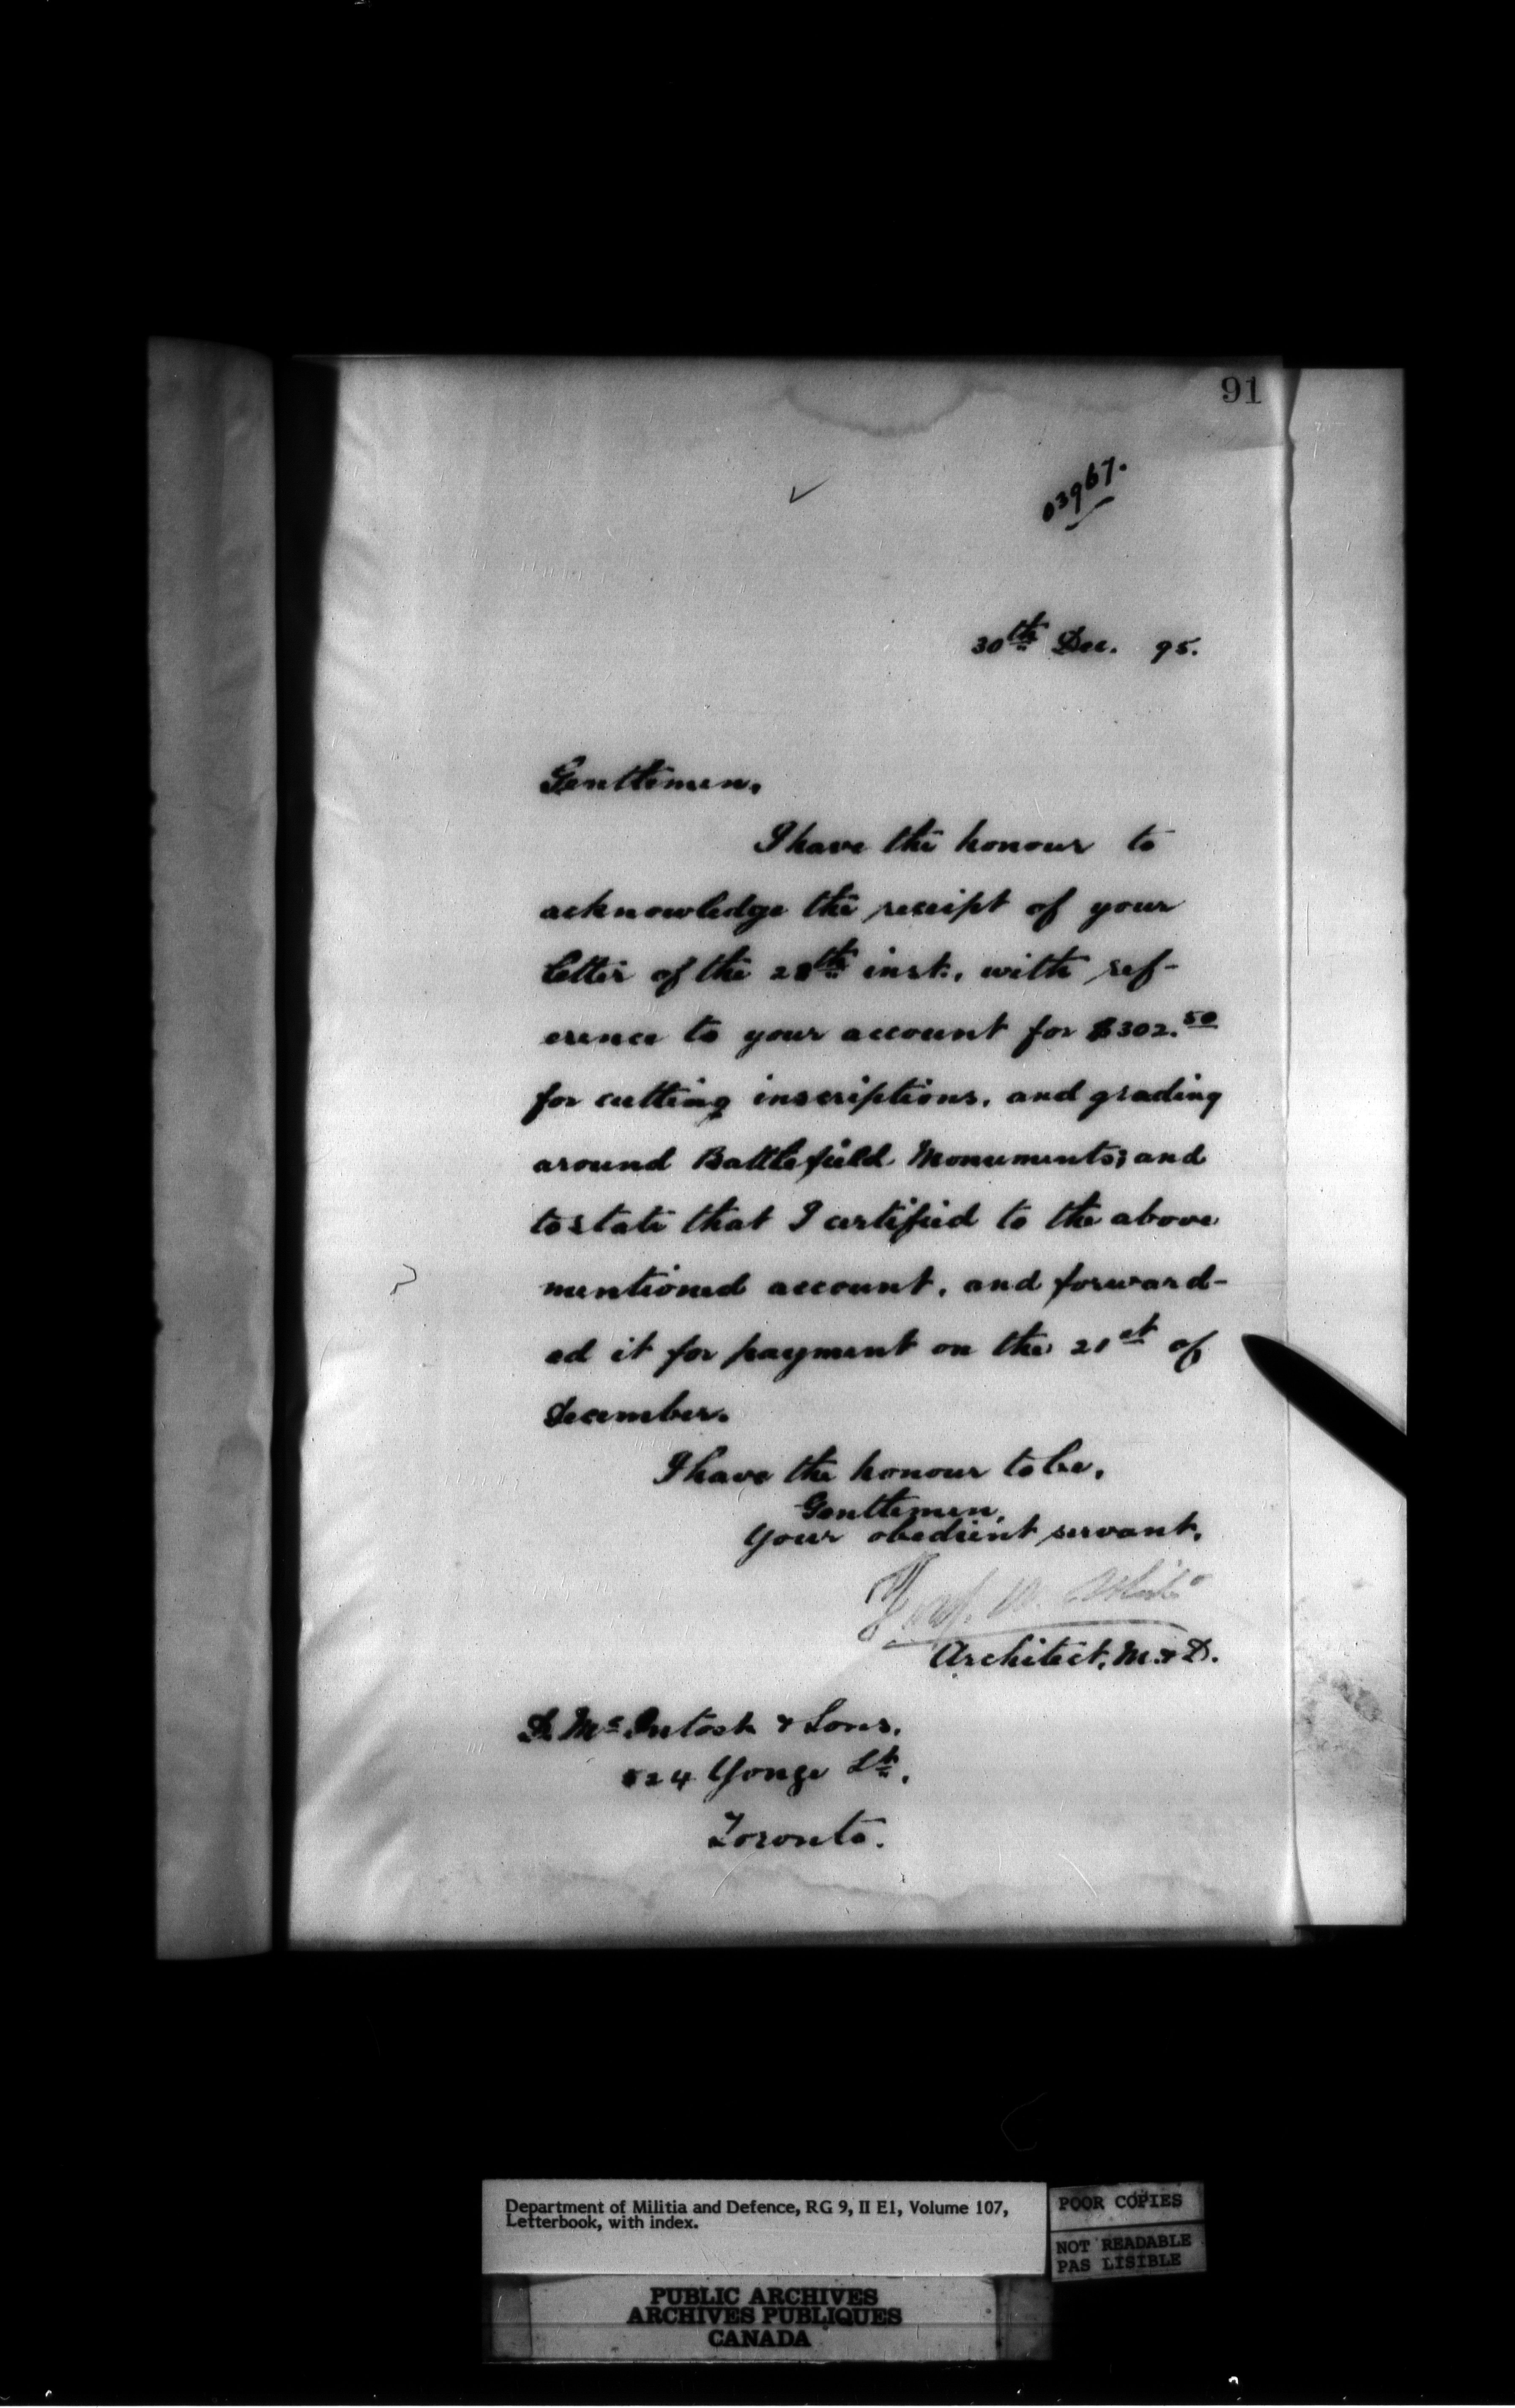 91
03967.
30th Dec. 95.
Gentlemen,
I have the honour to
acknowledge the receipt of your
letter of the 28th inst., with ref-
erence to your account for $302.50
for cutting inscriptions, and grading
around Battlefield Monuments; and
to state that I certified to the above
mentioned account, and forward-
ed it for payment on the 21st of
December.
I have the honour to be,
Gentlemen,
Your obedient servant,
W. White
Architect, M. & D.
D. McIntosh & Sons,
524 Yonge St.,
Toronto.
Department of Militia and Defence, RG 9, II E1, Volume 107,
Letterbook, with index.
POOR COPIES
NOT READABLE
PAS LISIBLE
PUBLIC ARCHIVES
ARCHIVES PUBLIQUES
CANADA